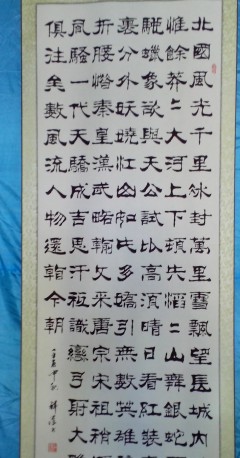 北國風光千里冰封萬里雪飄望長城內
惟餘莽〻大河上下頓失滔〻山舞銀蛇
馳蠟象欲與天公試比高須晴日看紅裝
裹分外妖嬈江山如此多嬌引無數英雄
折腰惜秦皇漢武略輸文采唐宗宋祖稍
風騷一代天驕成吉思汗祗識彎弓射大
俱往矣數風流人物還看今朝